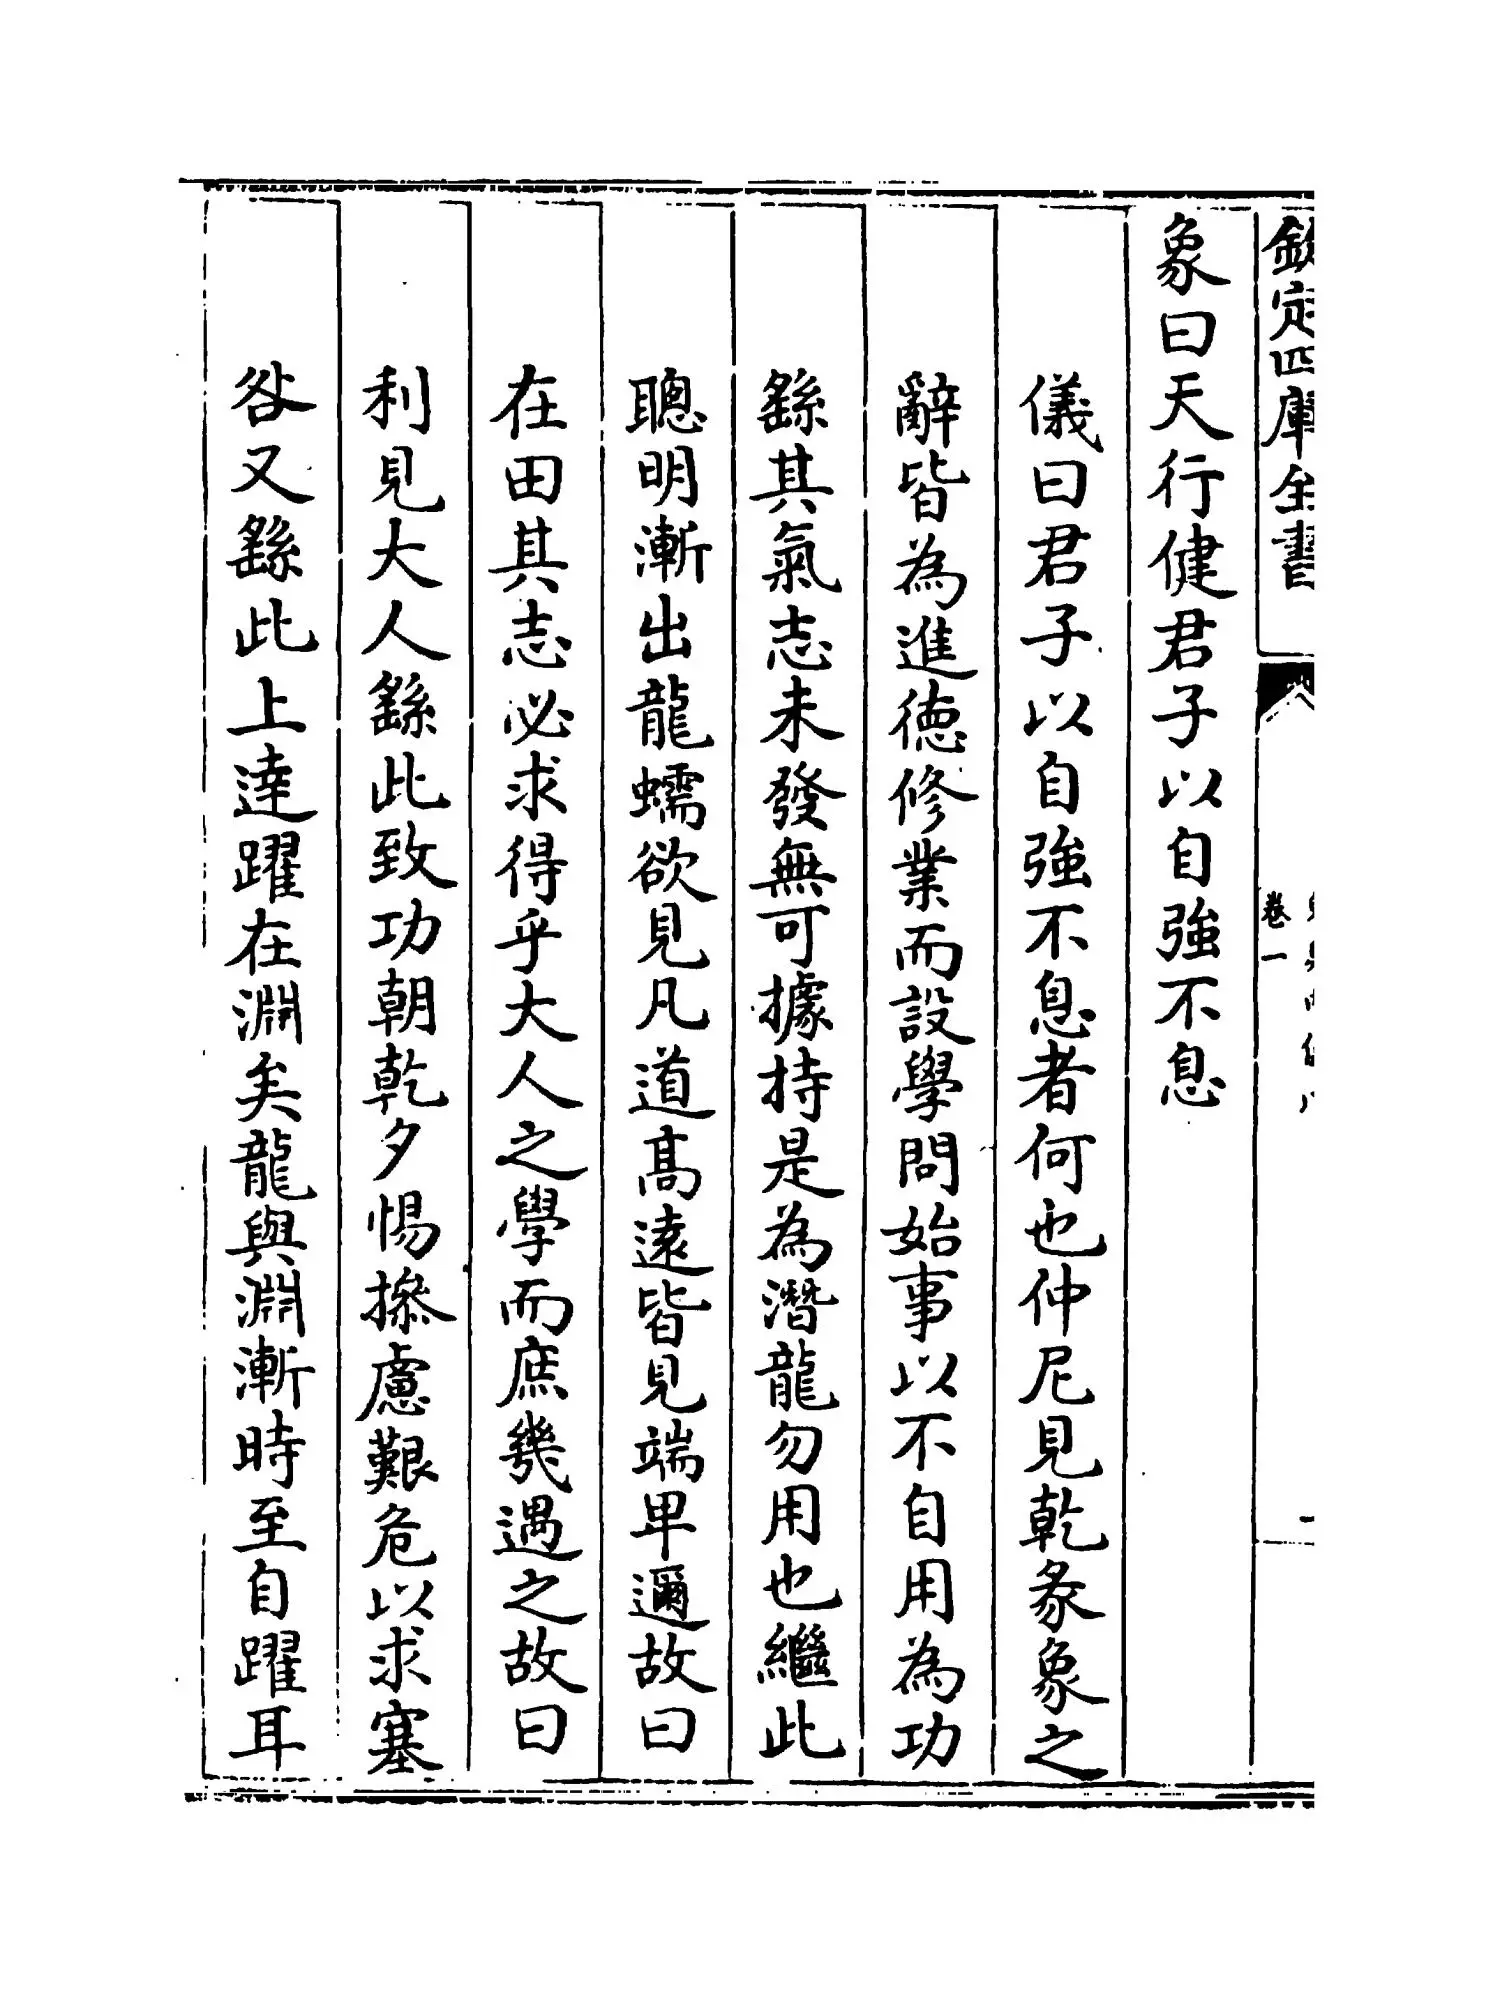 欽定四庫全書
卷一
象曰天行健君子以自強不息
儀曰君子以自強不息者何也仲尼見乾彖象之
辭皆為進德修業而設學問始事以不自用為功
繇其氣志未發無可據持是為潛龍勿用也繼此
聰明漸出龍蠕欲見凡道高遠皆見端卑邇故曰
在田其志必求得乎大人之學而庶幾遇之故曰
利見大人繇此致功朝乾夕惕操慮艱危以求塞
咎又繇此上達躍在淵矣龍與淵漸時至自躍耳